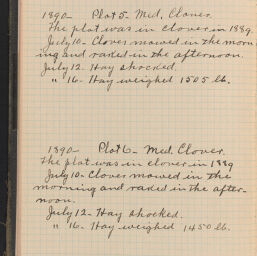 1890- Plot 5- Med. Clover.
The plot was in clover in 1889.
July 10- Clover mowed in the morn
ing and raked in the afternoon.
July 12. Hay shocked.
" 16- Hay weighed 1505 lb.
1890- Plot 6- Med. Clover.
The plot was in clover in 1889
July 10- Clover mowed in the
morning and raked in the after-
noon.
July 12- Hay shocked.
" 16- Hay weighed 1450 lb.